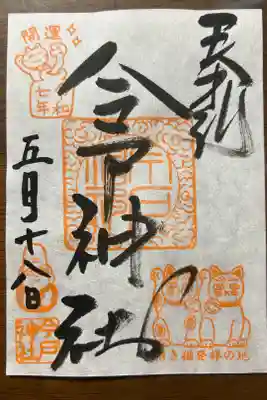 奉拝
今戸神社
五月十八日
開運
七年
和
き猫発祥の地
今戸
神社